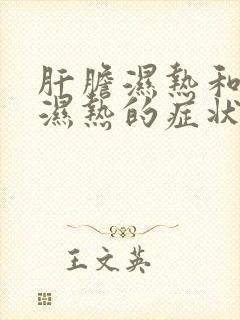 肝膽濕熱和
濕熱的症狀
王文英